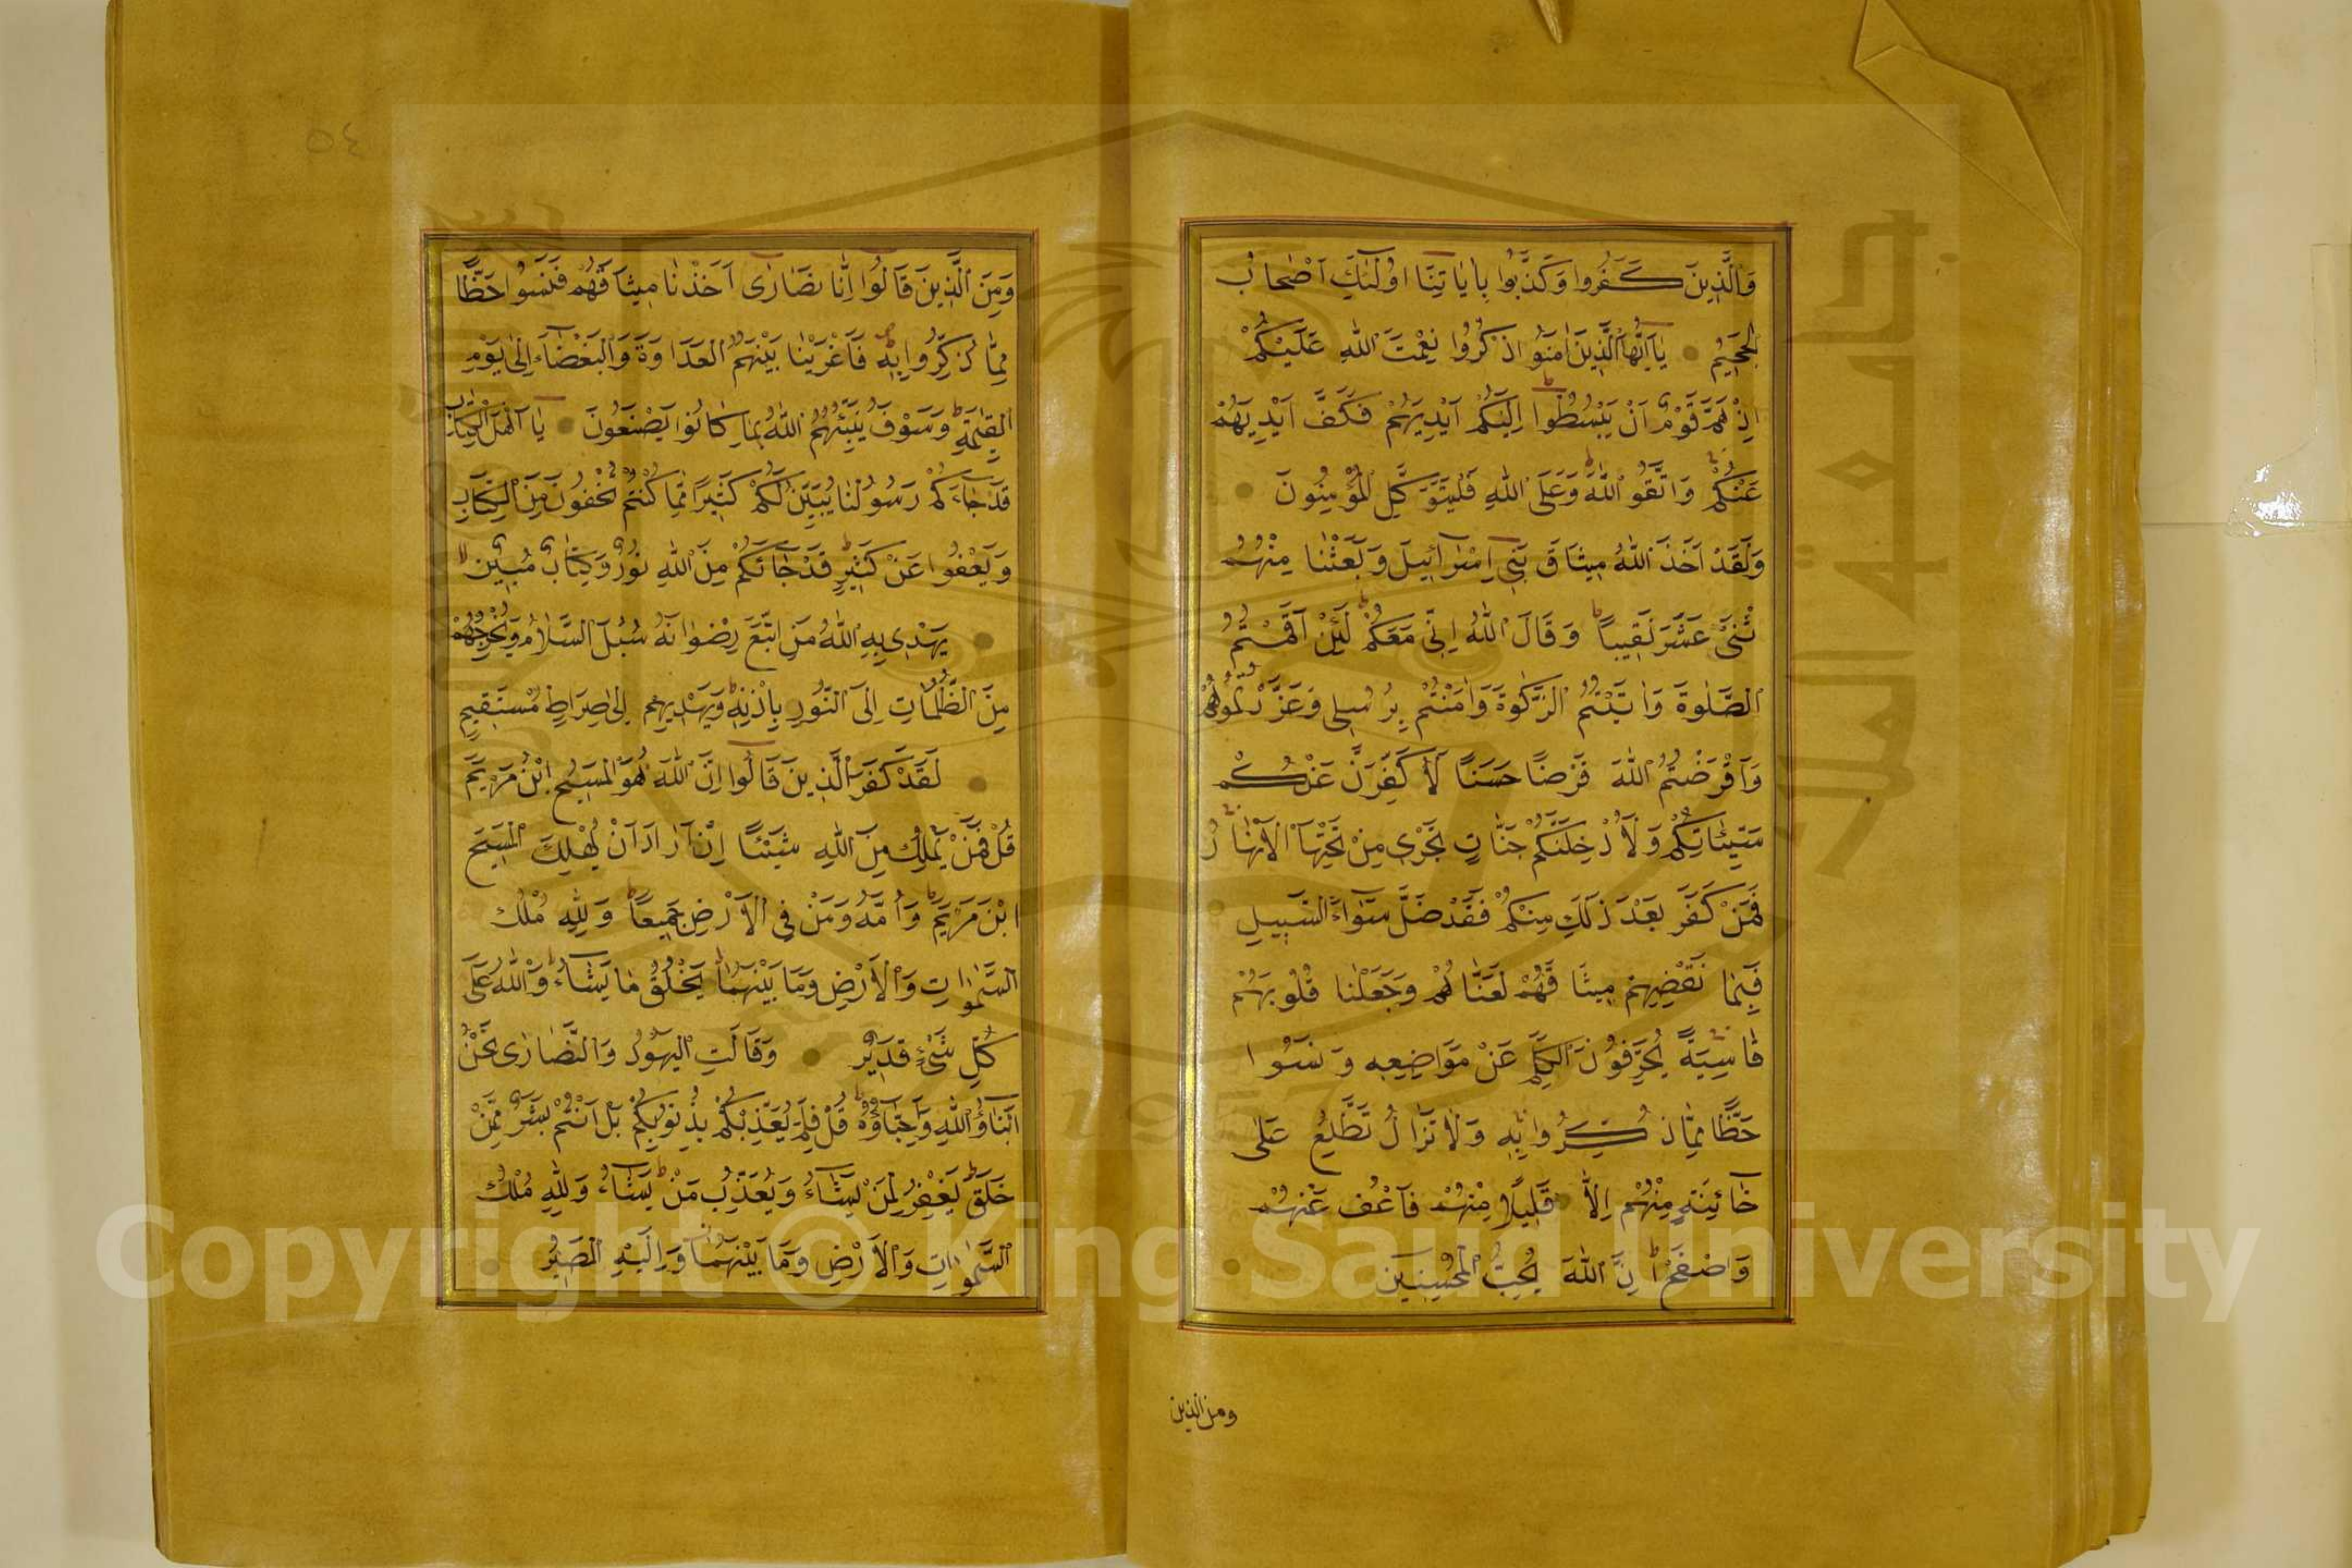 وَالَّذِينَ كَفَرُوا وَكَذَّبُوا بِاٰيَاتِنَا اُولٰٓئِكَ اَصْحَابُ
الْجَحِيمِ يَٓا اَيُّهَا الَّذِينَ اٰمَنُوا اذْكُرُوا نِعْمَتَ اللّٰهِ عَلَيْكُمْ
اِذْ هَمَّ قَوْمٌ اَنْ يَبْسُطُٓوا اِلَيْكُمْ اَيْدِيَهُمْ فَكَفَّ اَيْدِيَهُمْ
عَنْكُمْ وَاتَّقُوا اللّٰهَ وَعَلَى اللّٰهِ فَلْيَتَوَكَّلِ الْمُؤْمِنُونَ
وَلَقَدْ اَخَذَ اللّٰهُ مِيثَاقَ بَنِٓي اِسْرَٓائِيلَ وَبَعَثْنَا مِنْهُمُ
اثْنَىْ عَشَرَ نَقِيباً وَقَالَ اللّٰهُ اِنِّي مَعَكُمْ لَئِنْ اَقَمْتُمُ
الصَّلٰوةَ وَاٰتَيْتُمُ الزَّكٰوةَ وَاٰمَنْتُمْ بِرُسُلِي وَعَزَّرْتُمُوهُمْ
وَاَقْرَضْتُمُ اللّٰهَ قَرْضًا حَسَنًا لَاُكَفِّرَنَّ عَنْكُمْ
سَيِّئَاتِكُمْ وَلَاُدْخِلَنَّكُمْ جَنَّاتٍ تَجْرِي مِنْ تَحْتِهَا الْاَنْهَارُ
فَمَنْ كَفَرَ بَعْدَ ذٰلِكَ مِنْكُمْ فَقَدْ ضَلَّ سَوَٓاءَ السَّبِيلِ
فَبِمَا نَقْضِهِمْ مِيثَاقَهُمْ لَعَنَّاهُمْ وَجَعَلْنَا قُلُوبَهُمْ
قَاسِيَةً يُحَرِّفُونَ الْكَلِمَ عَنْ مَوَاضِعِهِ وَنَسُوا
حَظًّا مِمَّا ذُكِّرُوا بِهِ وَلَا تَزَالُ تَطَّلِعُ عَلٰى
خَٓائِنَةٍ مِنْهُمْ اِلَّا قَلِيلًا مِنْهُمْ فَاعْفُ عَنْهُمْ
وَاصْفَحْ اِنَّ اللّٰهَ يُحِبُّ الْمُحْسِنِينَ
ومن الذين
٥٤
وَمِنَ الَّذِينَ قَالُٓوا اِنَّا نَصَارٰى اَخَذْنَا مِيثَاقَهُمْ فَنَسُوا حَظًّا
مِمَّا ذُكِّرُوا بِهِ فَاَغْرَيْنَا بَيْنَهُمُ الْعَدَاوَةَ وَالْبَغْضَٓاءَ اِلٰى يَوْمِ
الْقِيٰمَةِ وَسَوْفَ يُنَبِّئُهُمُ اللّٰهُ بِمَا كَانُوا يَصْنَعُونَ يَٓا اَهْلَ الْكِتَابِ
قَدْ جَٓاءَكُمْ رَسُولُنَا يُبَيِّنُ لَكُمْ كَثِيرًا مِمَّا كُنْتُمْ تُخْفُونَ مِنَ الْكِتَابِ
وَيَعْفُوا عَنْ كَثِيرٍ قَدْ جَٓائَكُمْ مِنَ اللّٰهِ نُورٌ وَكِتَابٌ مُبِينٌ
يَهْدِي بِهِ اللّٰهُ مَنِ اتَّبَعَ رِضْوَانَهُ سُبُلَ السَّلَامِ وَيُخْرِجُهُمْ
مِنَ الظُّلُمَاتِ اِلَى النُّورِ بِاِذْنِهِ وَيَهْدِيهِمْ اِلٰى صِرَاطٍ مُسْتَقِيمٍ
لَقَدْ كَفَرَ الَّذِينَ قَالُٓوا اِنَّ اللّٰهَ هُوَ الْمَسِيحُ ابْنُ مَرْيَمَ
قُلْ فَمَنْ يَمْلِكُ مِنَ اللّٰهِ شَيْئًا اِنْ اَرَادَ اَنْ يُهْلِكَ الْمَسِيحَ
ابْنَ مَرْيَمَ وَاُمَّهُ وَمَنْ فِي الْاَرْضِ جَمِيعًا وَلِلّٰهِ مُلْكُ
السَّمٰوَاتِ وَالْاَرْضِ وَمَا بَيْنَهُمَا يَخْلُقُ مَا يَشَٓاءُ وَاللّٰهُ عَلٰى
كُلِّ شَىْءٍ قَدِيرٌ وَقَالَتِ الْيَهُودُ وَالنَّصَارٰى نَحْنُ
اَبْنَٓاؤُ اللّٰهِ وَاَحِبَّٓاؤُهُ قُلْ فَلِمَ يُعَذِّبُكُمْ بِذُنُوبِكُمْ بَلْ اَنْتُمْ بَشَرٌ مِمَّنْ
خَلَقَ يَغْفِرُ لِمَنْ يَشَٓاءُ وَيُعَذِّبُ مَنْ يَشَٓاءُ وَلِلّٰهِ مُلْكُ
السَّمٰوَاتِ وَالْاَرْضِ وَمَا بَيْنَهُمَا وَاِلَيْهِ الْمَصِيرُ
Copyright © King Saud University